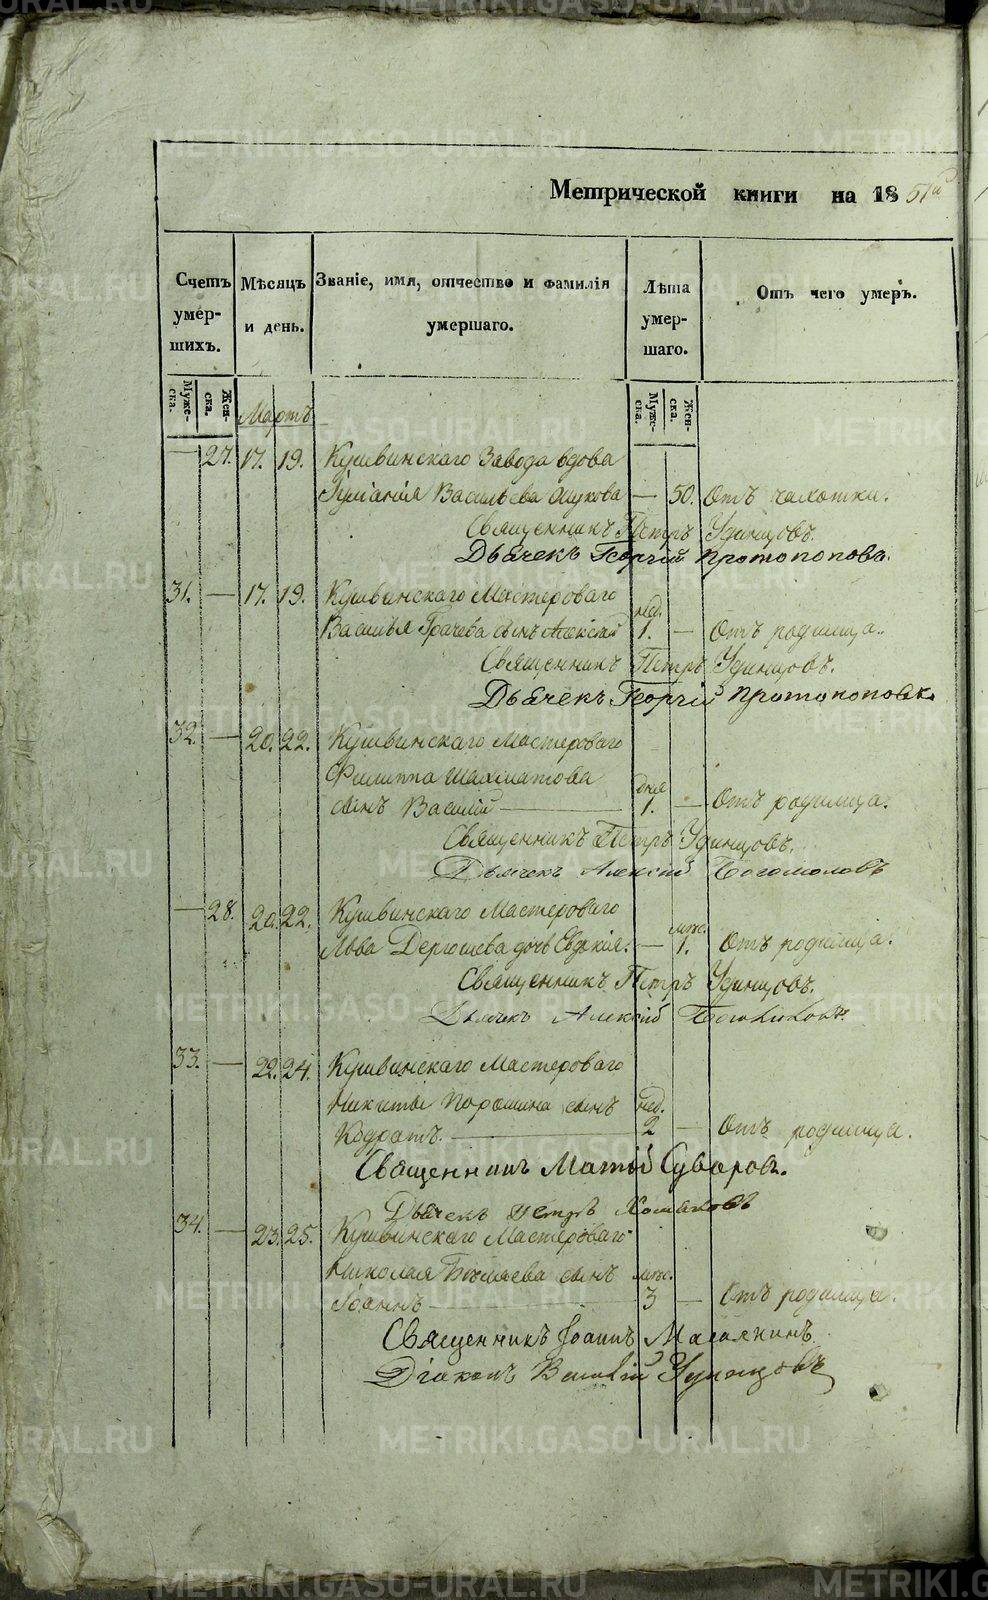 Метрической книги на 18 51й
Счетъ умер-шихъ.
Мѣсяцъ и день.
Званіе, имя, отчество и фамилія умершаго.
Лѣта умер-шаго.
Отъ чего умеръ.
Муже-ска.
Жен-ска.
Муже-ска.
Жен-ска.
Мартъ
— 27. 17. 19. Кушвинскаго Завода вдова
Васильева — 50. Отъ чахотки.
Священникъ Петръ Удинцовъ.
Дьячекъ Георгій Протопоповъ.
31. — 17. 19. Кушвинскаго Мастероваго нед.
Василья Грачева сынъ Алексѣй 1. — Отъ родимца.
Священникъ Петръ Удинцовъ.
Дьячекъ Георгій Протопоповъ.
32. — 20. 22. Кушвинскаго Мастероваго
Филиппа Шахматова дня
сынъ Василій 1. — Отъ родимца.
Священникъ Петръ Удинцовъ.
Дьячекъ Алексѣй Богомоловъ
— 28. 20. 22. Кушвинскаго Мастероваго мѣс.
Льва Дерюшева дочь Евдокія. — 1. Отъ родимца.
Священникъ Петръ Удинцовъ.
Дьячекъ Алексѣй
33. — 22. 24. Кушвинскаго Мастероваго
Никиты Порошина сынъ нед.
Кодратъ. 2 — Отъ родимца.
Священникъ Матѳій Суворовъ.
Дьячекъ Петръ Хомяковъ
34. — 23. 25. Кушвинскаго Мастероваго
Николая Бѣляева сынъ мѣс.
Іоаннъ 3 — Отъ родимца.
Священникъ Іоаннъ
Діаконъ Василій Удинцовъ
METRIKI.GASO-URAL.RU